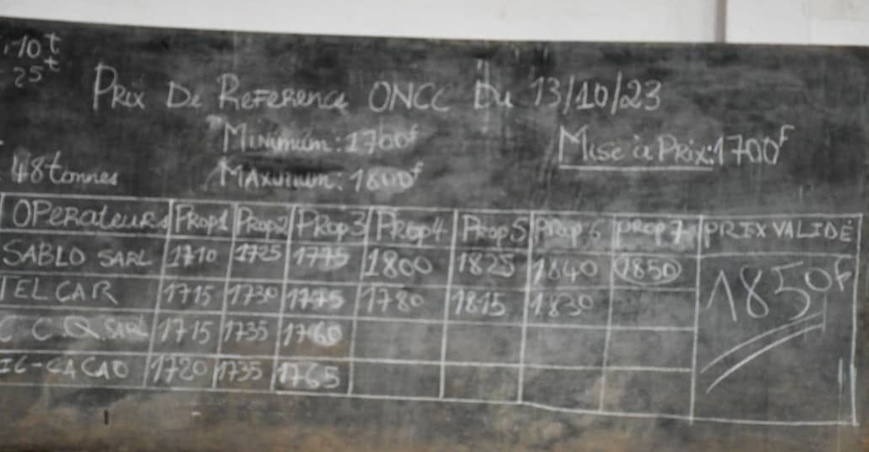 10t
25t
Prix De Reference ONCC Du 13/10/23
Minimum: 1700f
Mise à Prix: 1700F
48 tonnes
Maximum: 1800f
OPerateurs Prop1 Prop2 Prop3 Prop4 Prop5 Prop6 prop7 PRIX VALIDÉ
SABLO SARL 1710 1725 1775 1800 1825 1840 1850 1850f
TELCAR 1715 1730 1775 1780 1815 1830
C C.Q.SARL 1715 1735 1760
IC-CACAO 1720 1735 1765